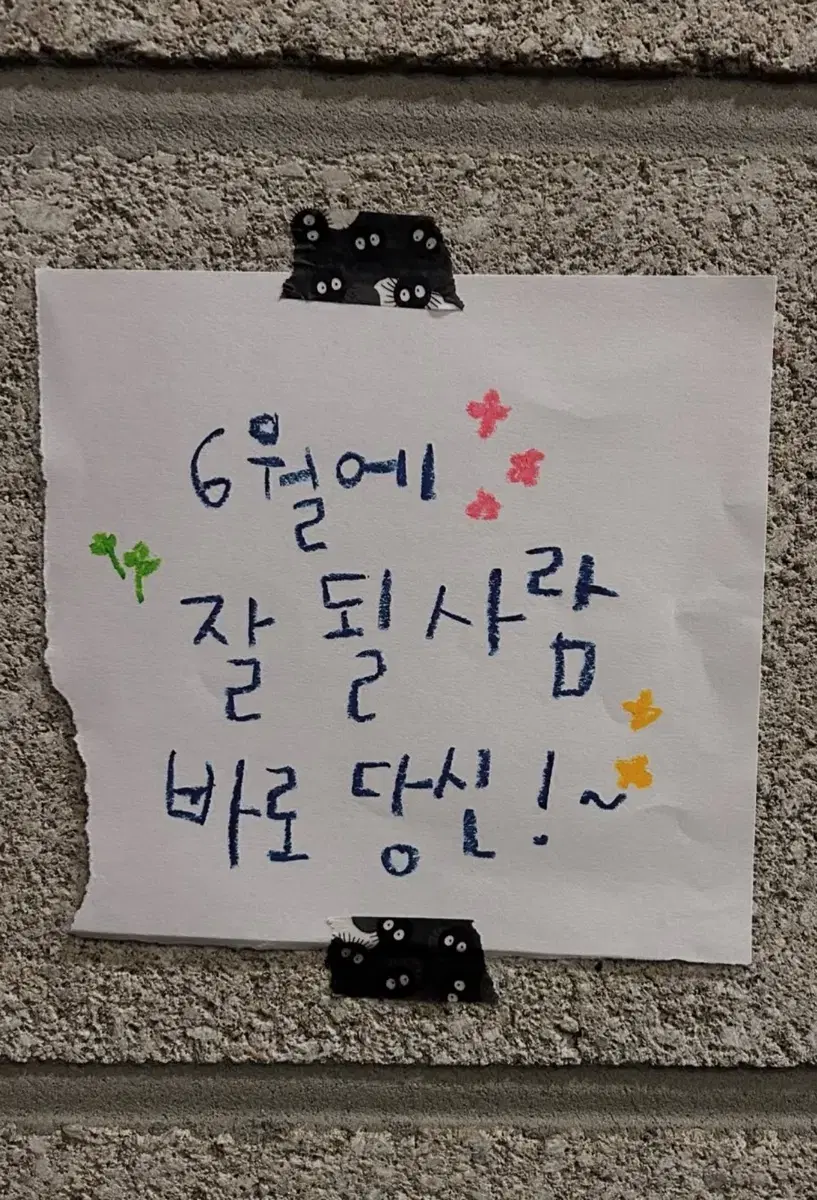 6월에
잘 될 사람
바로 당신!~